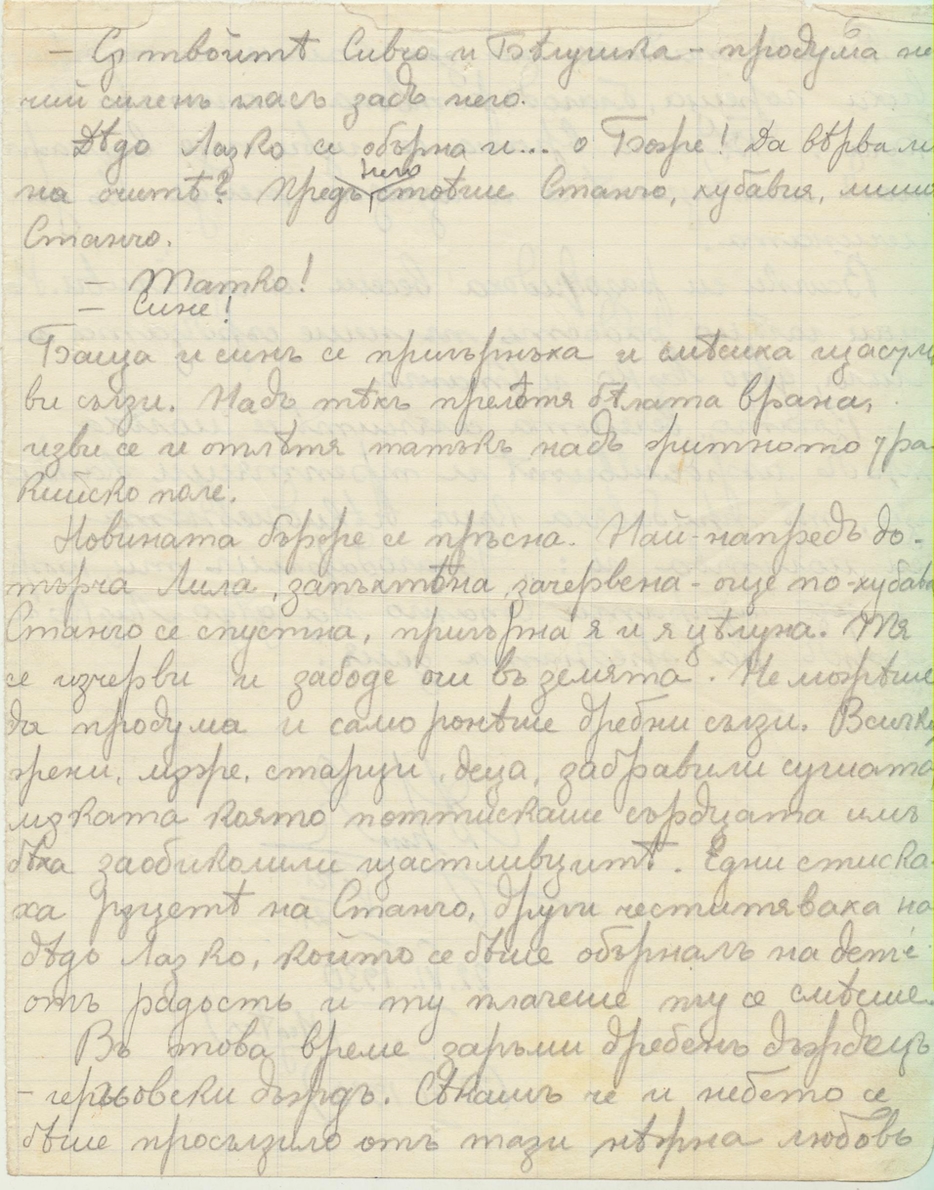 – Съ твоитѣ Сивчо и Бѣлушка – продума не
чий силенъ гласъ задъ него.
Дѣдо Лазко се обърна и... о Боже! Да вѣрва ли
на очитѣ? Предъ него стоѣше Станчо, хубавия, лични
Станчо.
– Татко!
– Сине!
Баща и синъ се пригърнаха и смѣсиха щастли
ви сълзи. Надъ тѣхъ прелѣтя бѣлата врана,
изви се и отлѣтя татъкъ надъ житното тра-
кийско поле.
Новината бърже се пръсна. Най-напредъ до-
търча Лила, запъхтѣна, зачервена – още по-хубава
Станчо се спустна, пригърна я и я цѣлуна. Тя
се изчерви и забоде очи въ земята. Не можѣше
да продума и само ронѣше дребни сълзи. Всички,
жени, мѫже, старци, деца, забравили сушата,
мѫката която потискаше сърдцата имъ
бѣха заобиколили щастливцитѣ. Едни стиска-
ха рѫцетѣ на Станчо, други честитяваха на
дѣдо Лазко, който се бѣше обърналъ на дете
отъ радость и ту плачеше ту се смѣеше.
Въ това време заръми дребенъ дъждецъ
– герьовски дъждъ. Сѣкашъ че и небето се
бѣше просълзило отъ тази вѣрна любовь